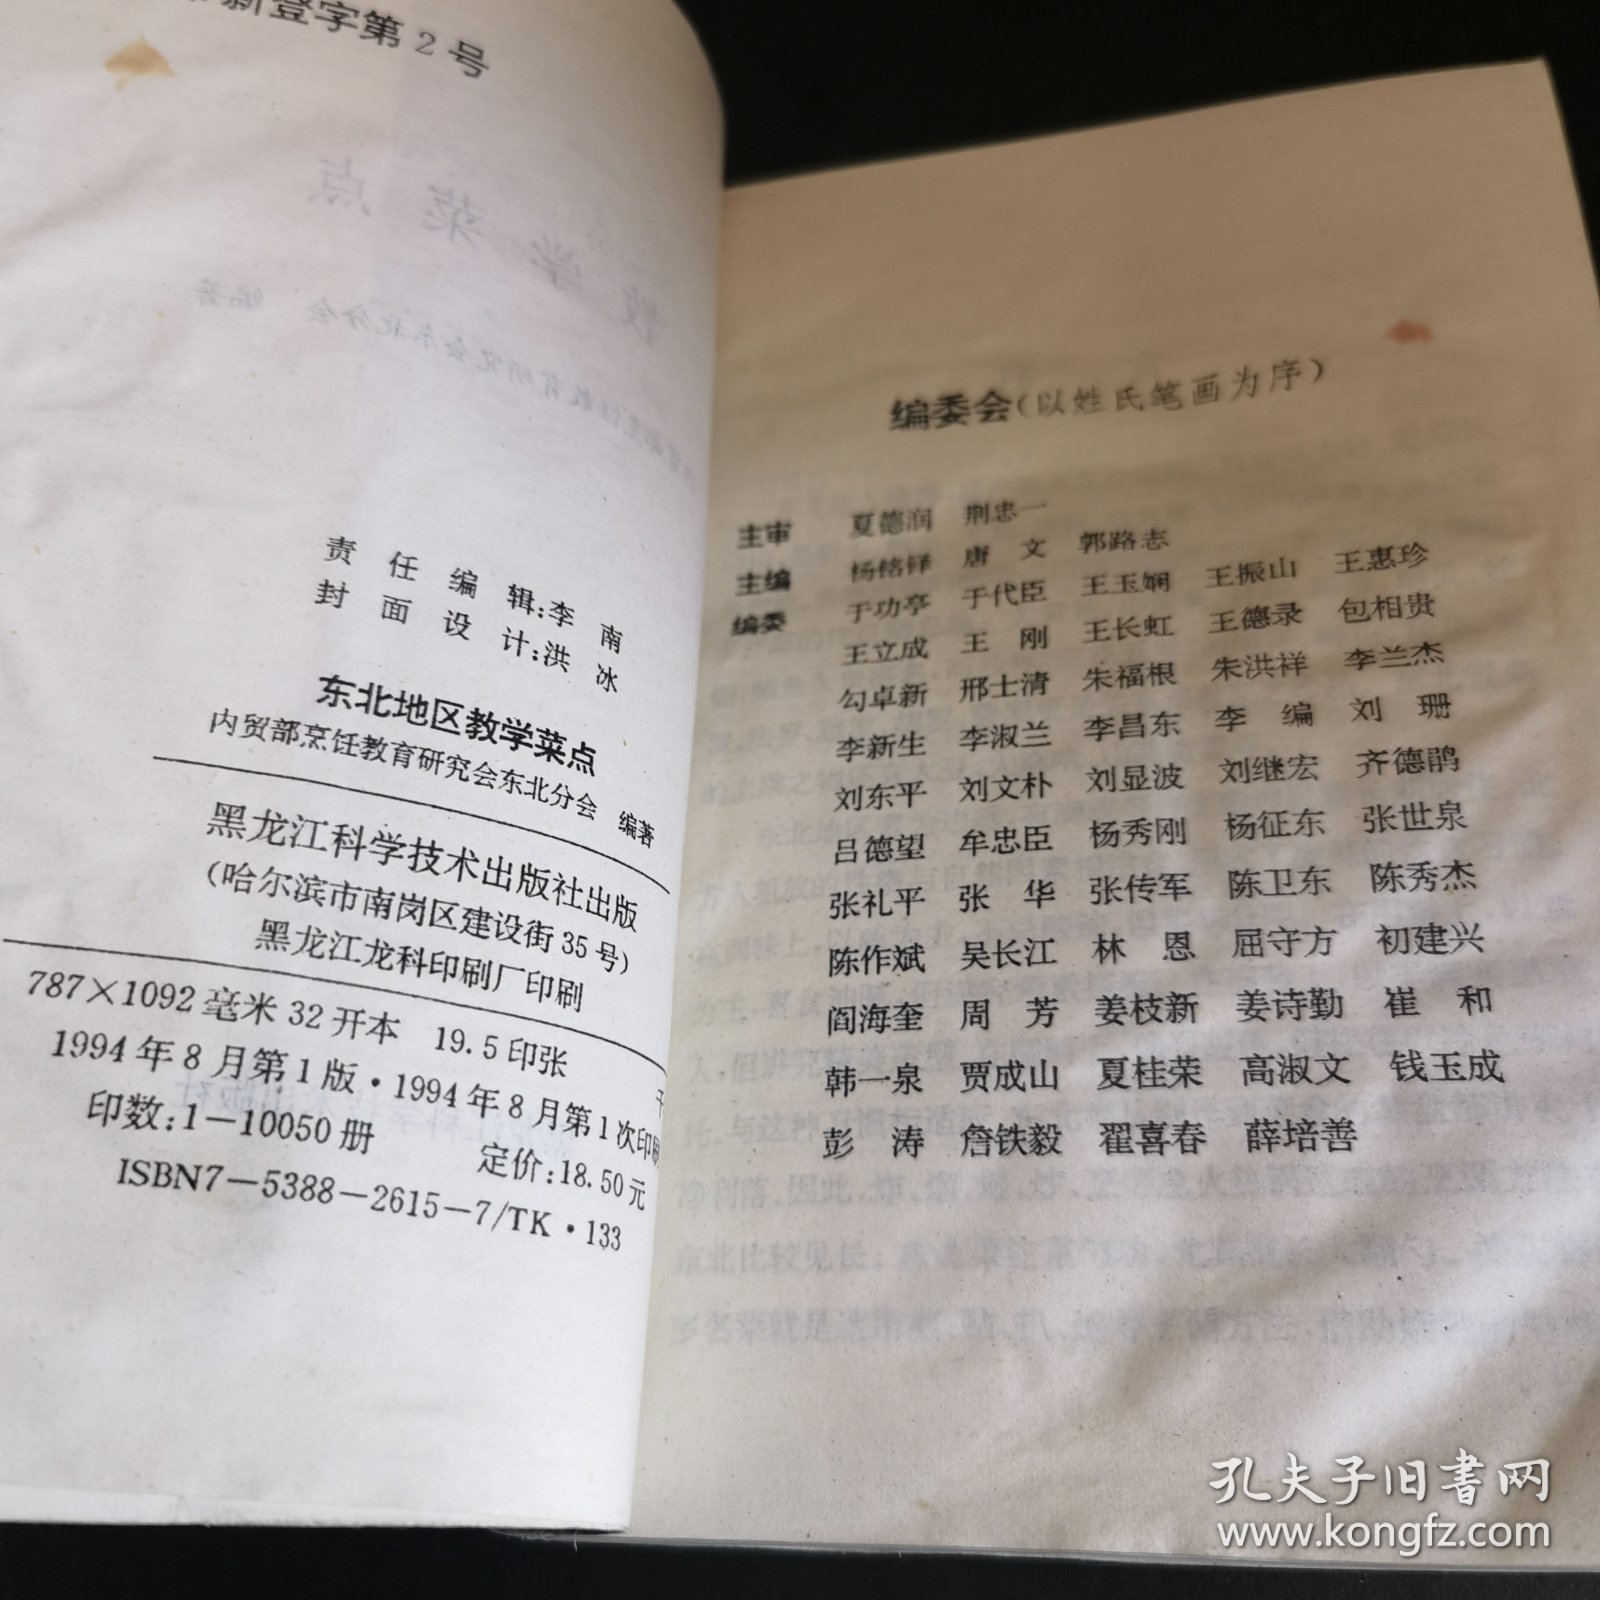 新登字第2号
责任编辑:李 南
封面设计:洪 冰
东北地区教学菜点
内贸部烹饪教育研究会东北分会 编著
黑龙江科学技术出版社出版
(哈尔滨市南岗区建设街35号)
黑龙江龙科印刷厂印刷
787×1092毫米32开本 19.5印张
1994年8月第1版·1994年8月第1次印刷
印数:1—10050册 定价:18.50元
ISBN7—5388—2615—7/TK·133
编委会(以姓氏笔画为序)
主审 夏德润 荆忠一
主编 杨铭铎 唐 文 郭路志
编委 于功亭 于代臣 王玉娴 王振山 王惠珍
王立成 王 刚 王长虹 王德录 包相贵
勾卓新 邢士清 朱福根 朱洪祥 李兰杰
李新生 李淑兰 李昌东 李 编 刘 珊
刘东平 刘文朴 刘显波 刘继宏 齐德鹃
吕德望 牟忠臣 杨秀刚 杨征东 张世泉
张礼平 张 华 张传军 陈卫东 陈秀杰
陈作斌 吴长江 林 恩 屈守方 初建兴
阎海奎 周 芳 姜枝新 姜诗勤 崔 和
韩一泉 贾成山 夏桂荣 高淑文 钱玉成
彭 涛 詹铁毅 翟喜春 薛培善
孔夫子旧书网
www.kongfz.com